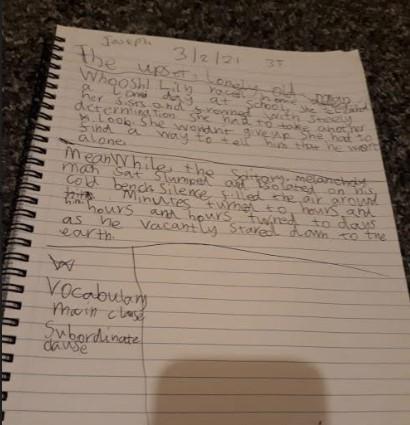 Joseph
3/2/21
The upset, lonely old
Whoosh! Lily raced home
a long day at school. She
her sides and frowned with steely
determination. She had to take another
look. She wouldnt give up. She had to
find a way to tell him that he wasnt
alone.
Meanwhile, the Solitary, melancholy
man sat slumped and isolated on his
cold bench. Silence filled the air around
him. Minutes turned to hours and
hours and hours turned to days
as he vacantly stared down to the
earth.
Vocabulary
main clause
Subordinate
clause